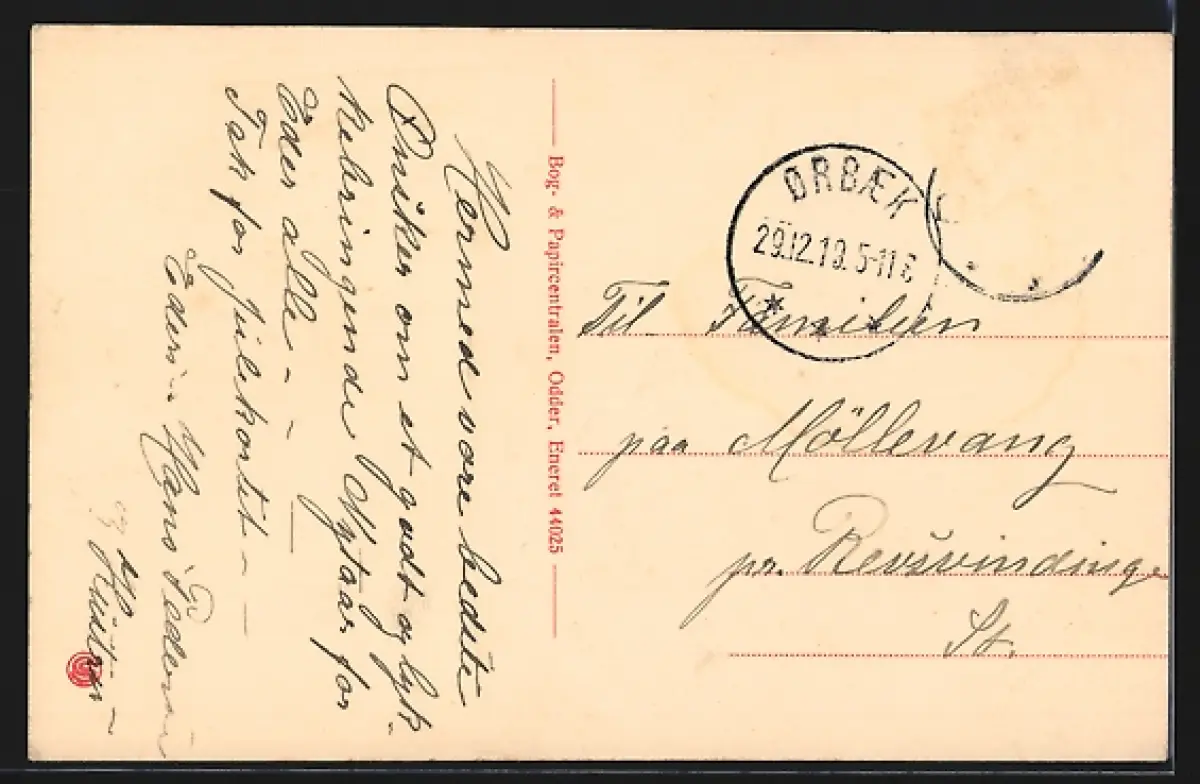 Hermed vore bedste
Ønsker om et godt og lyk-
kebringende Nytaar for
Eder alle - -
Tak for Julekortet - -
Eders Hans Pedersen
og Hustru -
Bog- & Papircentralen, Odder, Eneret 44025
ØRBÆK
29.12.19. 5-11 E
Til Familien
paa Möllevang
pr. Revsvindinge
St.